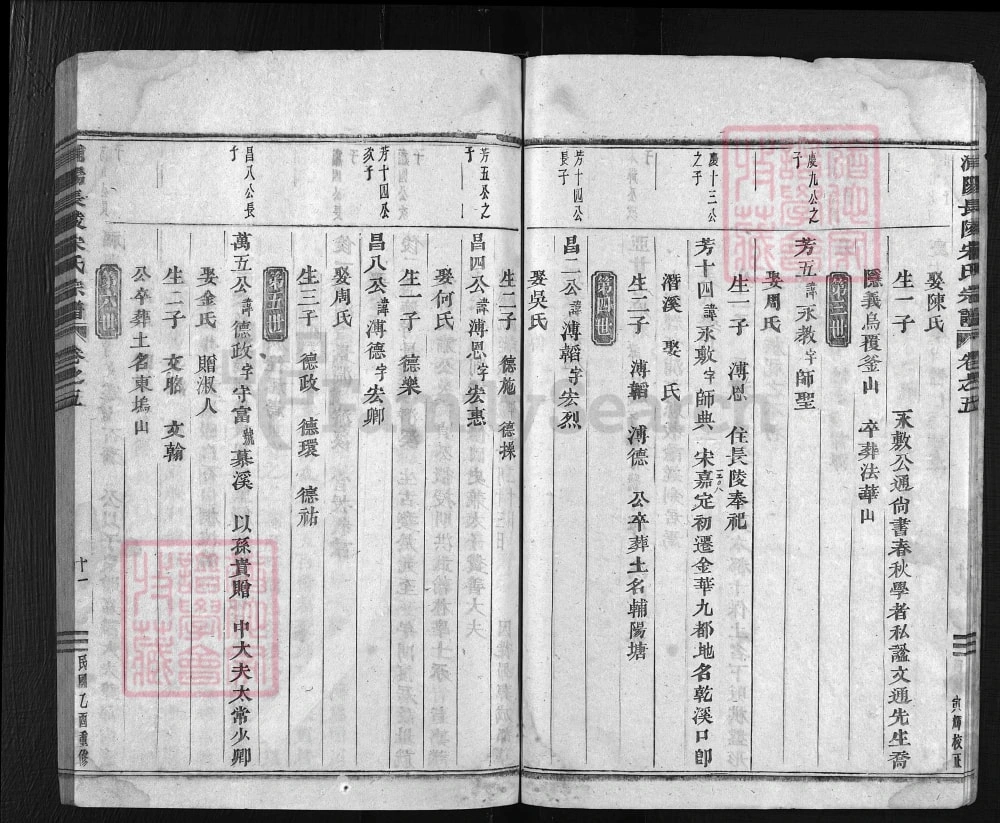 浦陽長陵宋氏宗譜 卷之五
寅輝校正
娶陳氏
生一子 永敷公通尙書春秋學者私謚文通先生喬
隱義烏覆釜山 卒葬法華山
第三世
慶九公之子
芳五諱永教字師聖
娶周氏
生一子 溥恩 住長陵奉祀
慶十三公之子
芳十四諱永敷字師典 宋嘉定初遷金華九都地名乾溪口卽
一二〇八
潛溪 娶 氏
生二子 溥韜 溥德 公卒葬土名輔陽塘
第四世
芳十四公長子
昌二公諱溥韜字宏烈
娶吳氏
生二子 德施 德操
芳五公之子
昌四公諱溥恩字宏惠
娶何氏
生一子 德樂
芳十四公次子
昌八公諱溥德字宏卿
娶周氏
生三子 德政 德環 德祐
第五世
昌八公長子
萬五公諱德政字守富號慕溪 以孫貴贈 中大夫太常少卿
娶金氏 贈淑人
生二子 文昭 文翰
公卒葬土名東塢山
第六世
浦陽長陵宋氏宗譜 卷之五
十一
民國乙酉重修
FamilySearch